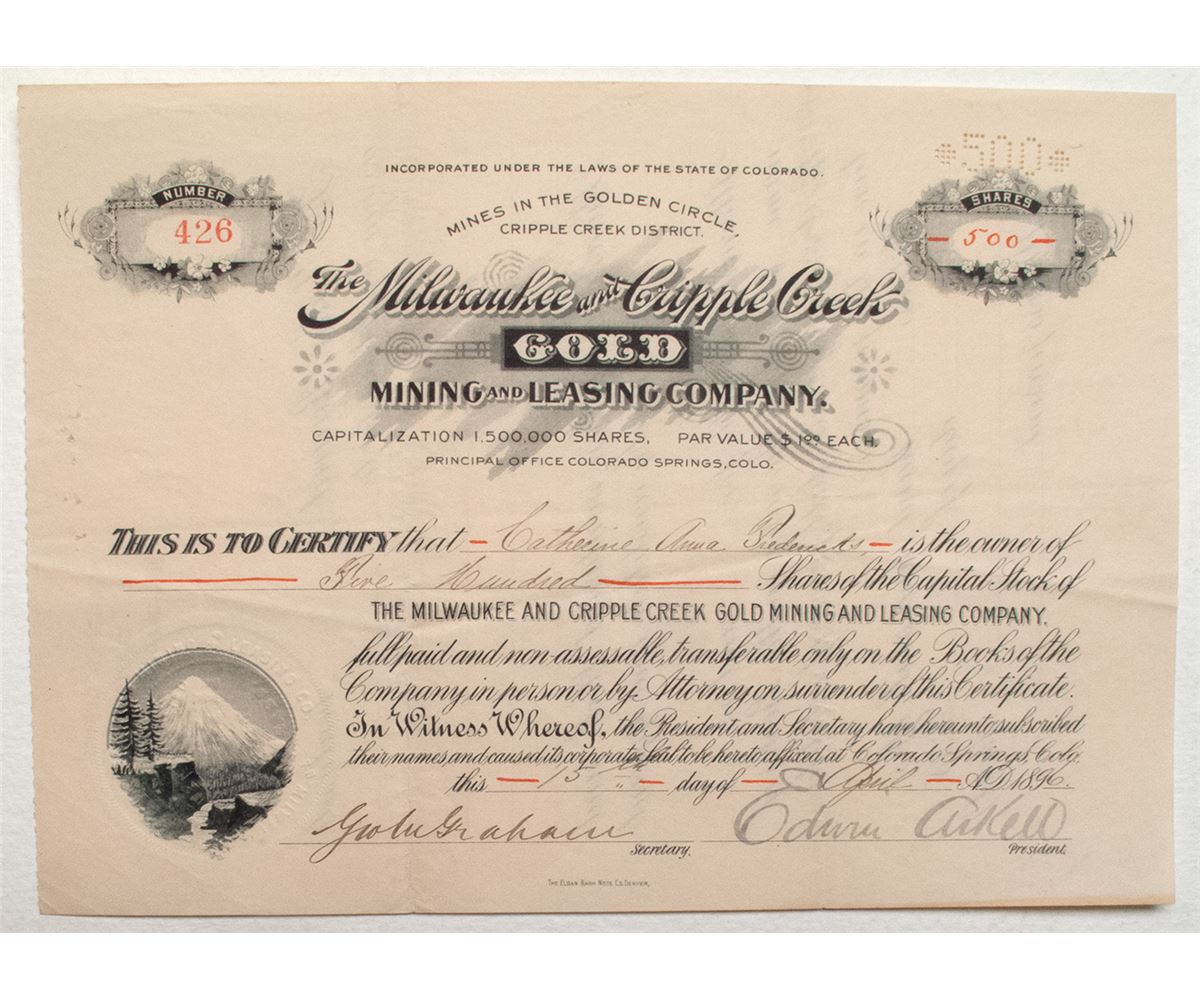 *500*
INCORPORATED UNDER THE LAWS OF THE STATE OF COLORADO.
NUMBER
426
SHARES
500
MINES IN THE GOLDEN CIRCLE,
CRIPPLE CREEK DISTRICT.
The Milwaukee and Cripple Creek
GOLD
MINING AND LEASING COMPANY.
CAPITALIZATION 1.500.000 SHARES, PAR VALUE $1.00 EACH.
PRINCIPAL OFFICE COLORADO SPRINGS, COLO.
THIS IS TO CERTIFY that – Catherine Anna Fredericks – is the owner of
Five Hundred Shares of the Capital Stock of
THE MILWAUKEE AND CRIPPLE CREEK GOLD MINING AND LEASING COMPANY.
full paid and non-assessable, transferable only on the Books of the
Company in person or by Attorney on surrender of this Certificate.
In Witness Whereof, the President and Secretary have hereunto subscribed
their names and caused its corporate Seal to be hereto affixed at Colorado Springs, Colo.
this – 15th – day of – April – A.D. 1896.
Graham
Edwin Arkell
Secretary.
President.
THE ELGAN BANK NOTE CO. DENVER.